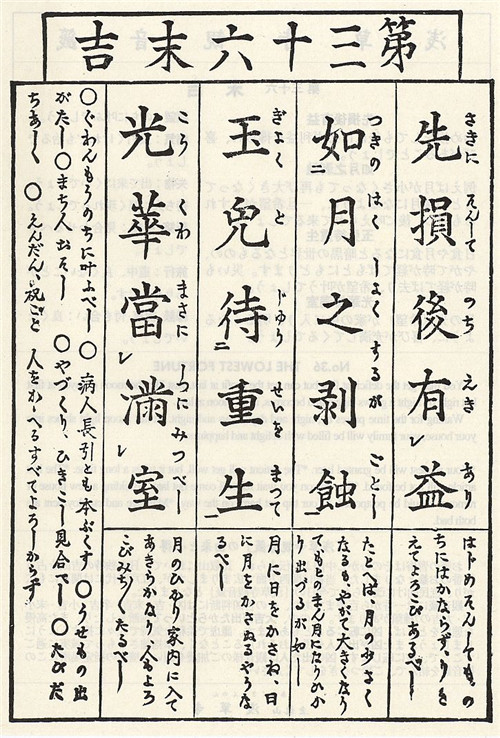 第三十六末吉
先損後有益
さきに そんして のち えき あり
はじめそんしてものちにはかならずりをえてよろこびあるべし
如月之剥蝕
つきの はく しよく するが ごとし
たとへば、月のちさくなるも、やがて大きくなりてもとのまん月になりひかり出づるが如し
玉兎待重生
ぎよく と じゆう せいを まつて
月に日をかさね、日に月をかさぬるやうなるべし
光華當滿室
こう くわ まさに しつにみつべし
月のひかり家内に入てあきらかなり、人もよろこびみちみちたるべし
〇ぐわんもうのちに叶ふべし 〇病人長引とも本ぷくす 〇うせもの出
がたし 〇まち人出そし 〇やづくり、ひきこし見合べし 〇たびだ
ちあしく 〇えんだん、祝ごと 人をかゝへるすべてよろしからず